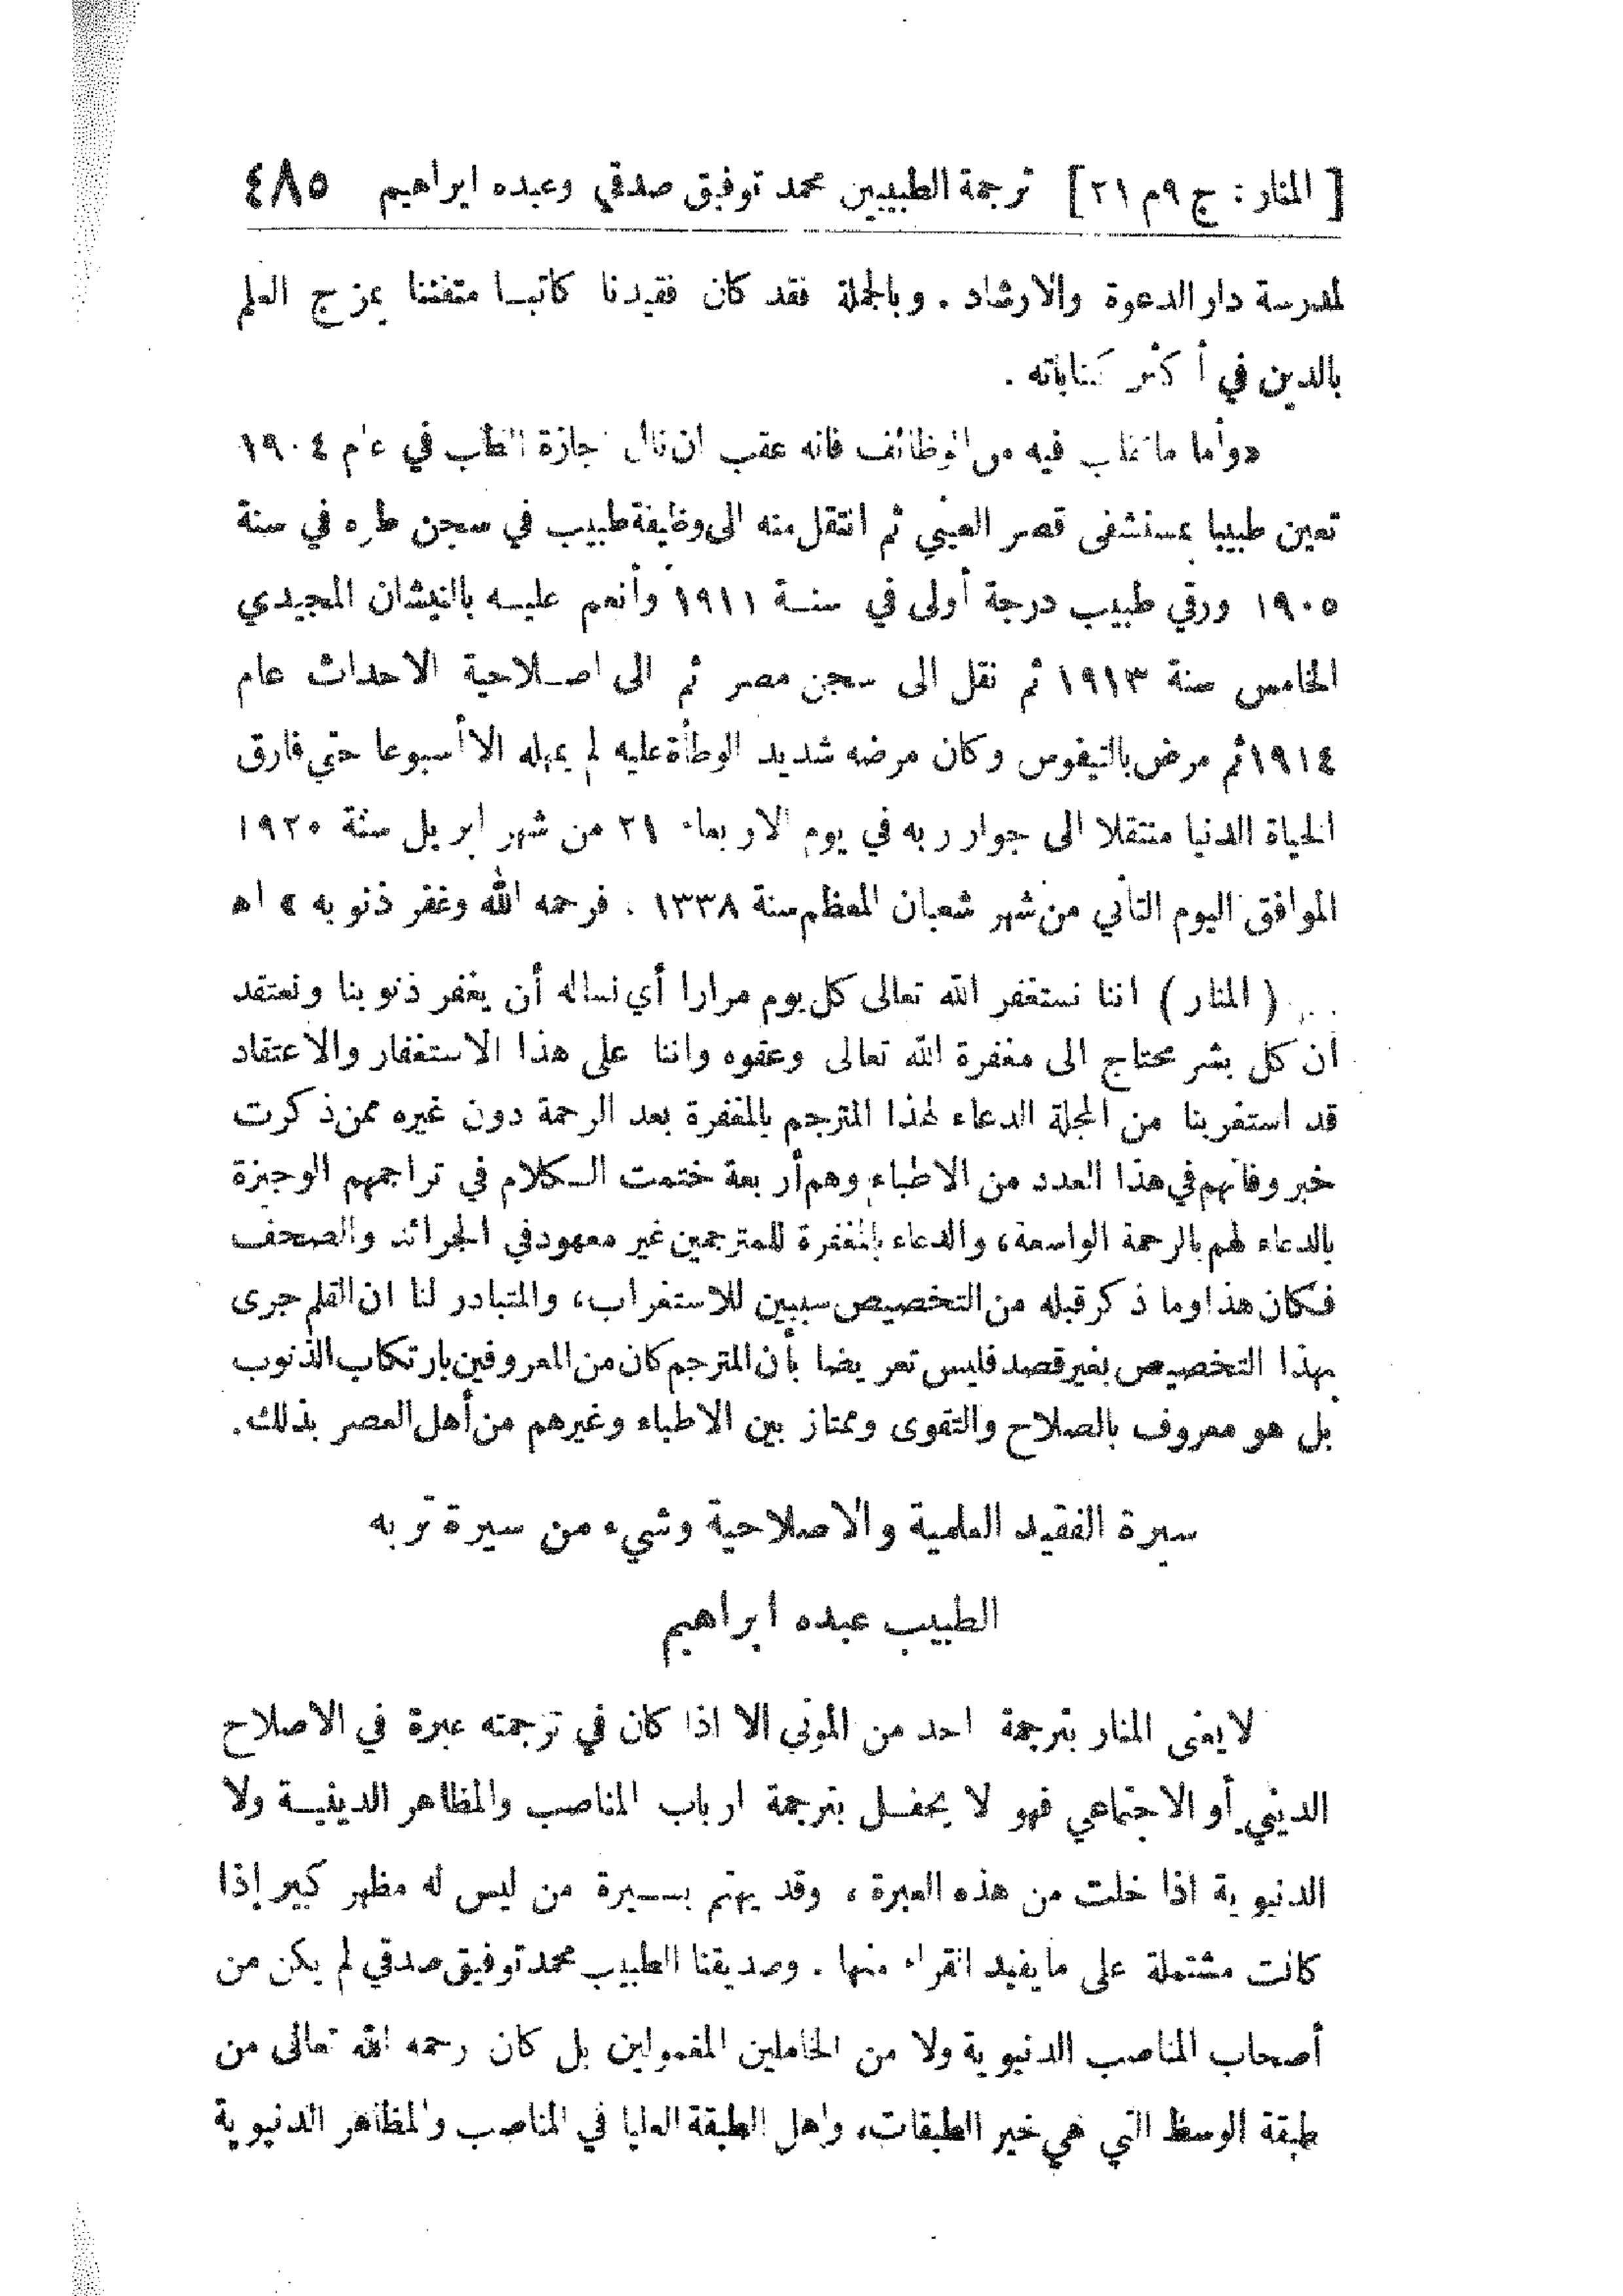 [ المنار : ج ٩ م ٢١ ] ترجمة الطبيبين محمد توفيق صدقي وعبده ابراهيم ٤٨٥
لمدرسة دار الدعوة والارشاد . وبالجملة فقد كان فقيدنا كاتبا متفننا يمزج العلم
بالدين في أكثر كتاباته .
« وأما ما تقلب فيه من الوظائف فانه عقب ان نال اجازة الطب في عام ١٩٠٤
تعين طبيبا بمستشفى قصر العيني ثم انتقل منه الى وظيفة طبيب في سجن طره في سنة
١٩٠٥ ورقي طبيب درجة أولى في سنة ١٩١١ وأنعم عليه بالنيشان المجيدي
الخامس سنة ١٩١٣ ثم نقل الى سجن مصر ثم الى اصلاحية الاحداث عام
١٩١٤ ثم مرض بالتيفوس وكان مرضه شديد الوطأة عليه لم يمهله الا أسبوعا حتى فارق
الحياة الدنيا منتقلا الى جوار ربه في يوم الاربعاء ٢١ من شهر ابريل سنة ١٩٢٠
الموافق اليوم الثاني من شهر شعبان المعظم سنة ١٣٣٨ . فرحمه الله وغفر ذنوبه » اه
( المنار ) اننا نستغفر الله تعالى كل يوم مرارا أي نسأله أن يغفر ذنوبنا ونعتقد
أن كل بشر محتاج الى مغفرة الله تعالى وعفوه واننا على هذا الاستغفار والاعتقاد
قد استغربنا من المجلة الدعاء لهذا المترجم بالمغفرة بعد الرحمة دون غيره ممن ذكرت
خبر وفاتهم في هذا العدد من الاطباء وهم أربعة ختمت الكلام في تراجمهم الوجيزة
بالدعاء لهم بالرحمة الواسعة، والدعاء بالمغفرة للمترجمين غير معهود في الجرائد والصحف
فكان هذا وما ذكر قبله من التخصيص سببين للاستغراب، والمتبادر لنا ان القلم جرى
بهذا التخصيص بغير قصد فليس تعريضا بأن المترجم كان من المعروفين بارتكاب الذنوب
بل هو معروف بالصلاح والتقوى وممتاز بين الاطباء وغيرهم من أهل العصر بذلك.
سيرة الفقيد العلمية والاصلاحية وشيء من سيرة تربه
الطبيب عبده ابراهيم
لا يعنى المنار بترجمة احد من الموتى الا اذا كان في ترجمته عبرة في الاصلاح
الديني أو الاجتماعي فهو لا يحفل بترجمة ارباب المناصب والمظاهر الدينية ولا
الدنيوية اذا خلت من هذه العبرة ، وقد يهتم بسيرة من ليس له مظهر كبير إذا
كانت مشتملة على ما يفيد القراء منها . وصديقنا الطبيب محمد توفيق صدقي لم يكن من
أصحاب المناصب الدنيوية ولا من الخاملين المغمولين بل كان رحمه الله تعالى من
طبقة الوسط التي هي خير الطبقات، واهل الطبقة العليا في المناصب والمظاهر الدنيوية